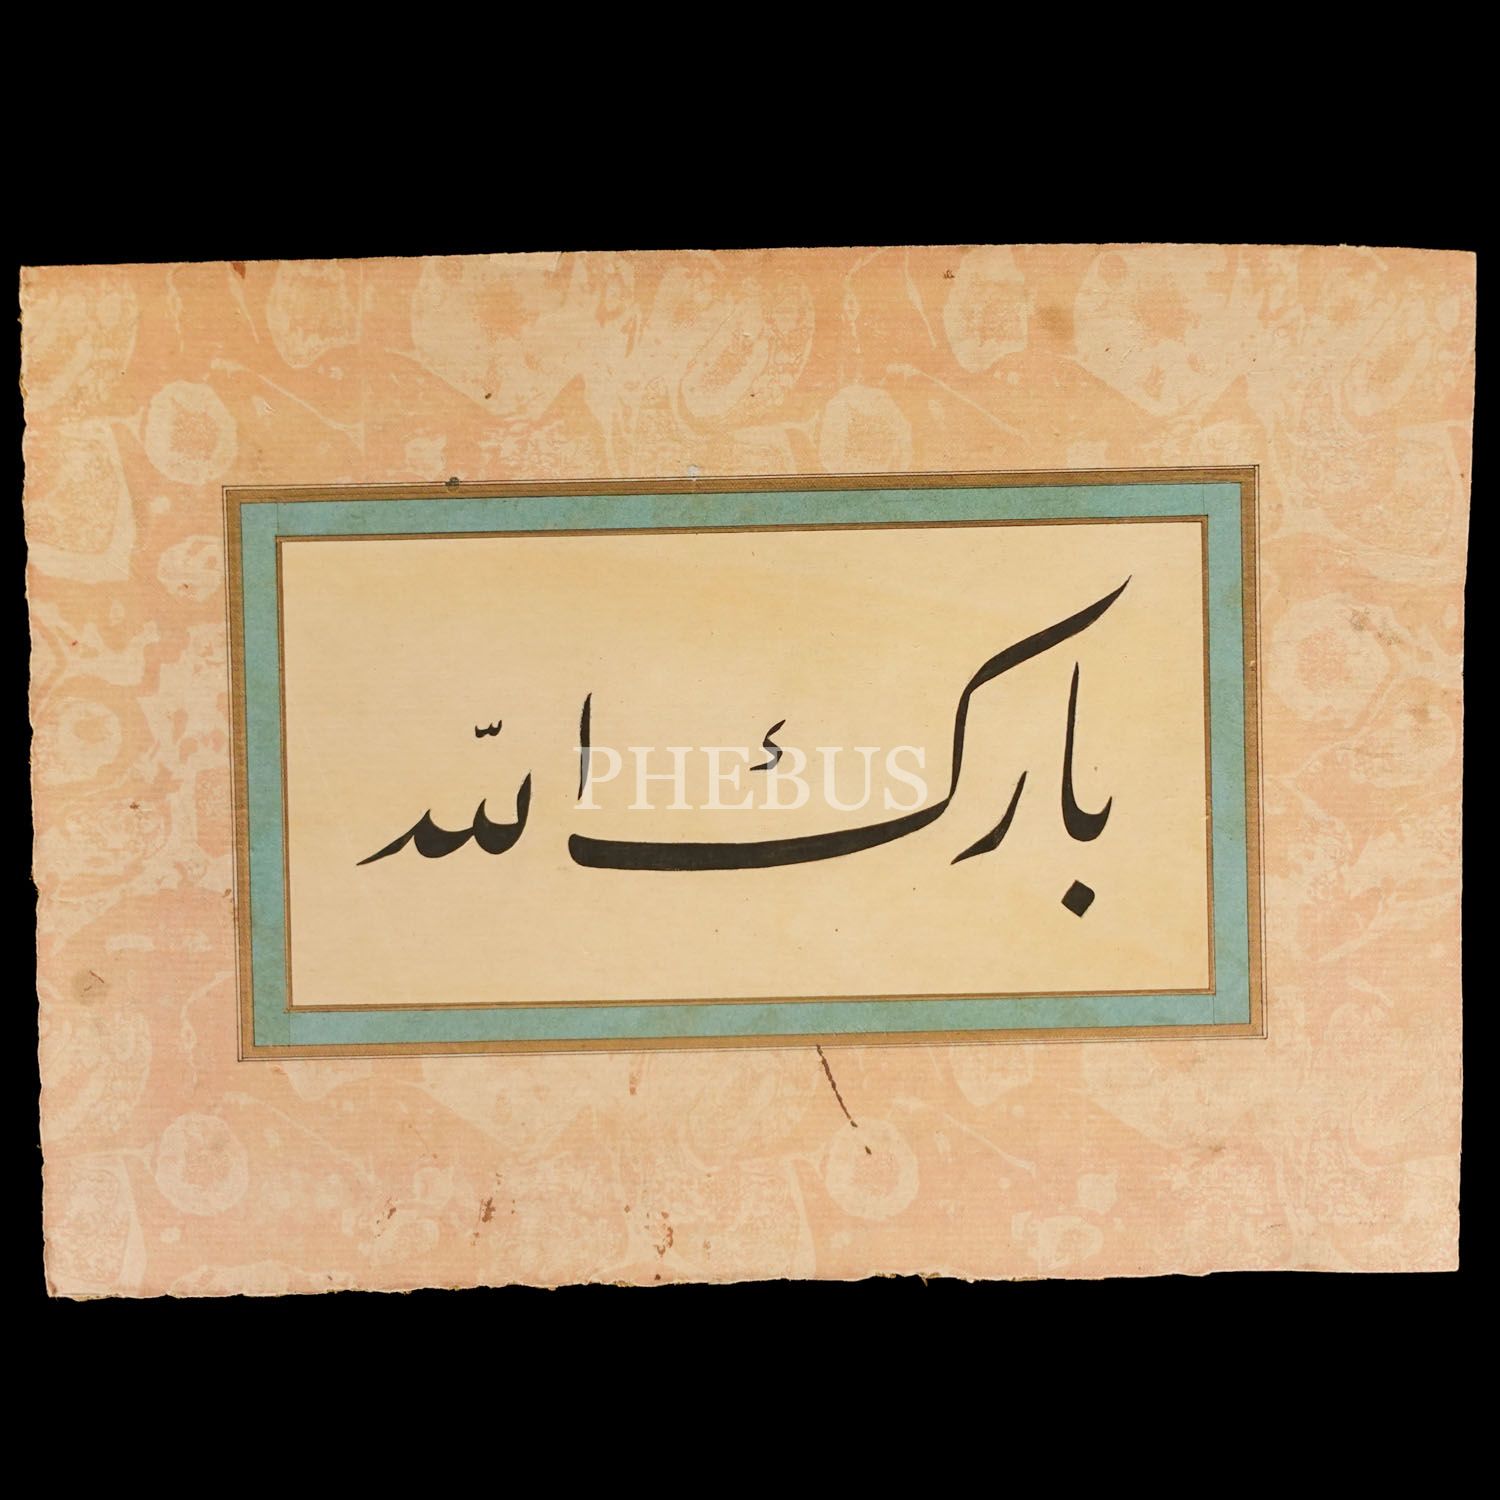 بارك الله
PHEBUS